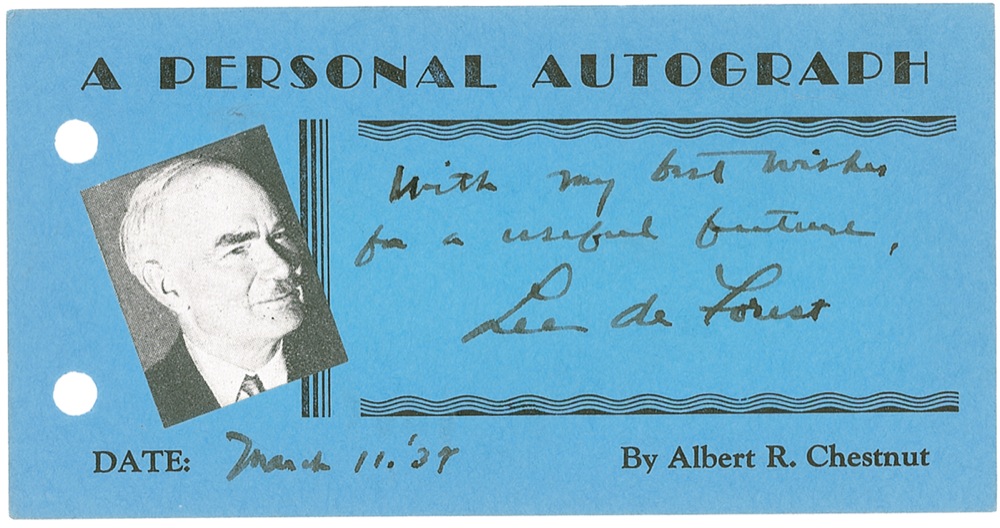 A PERSONAL AUTOGRAPH
With my best wishes
for a useful future,
Lee de Forest
DATE: March 11. '38
By Albert R. Chestnut